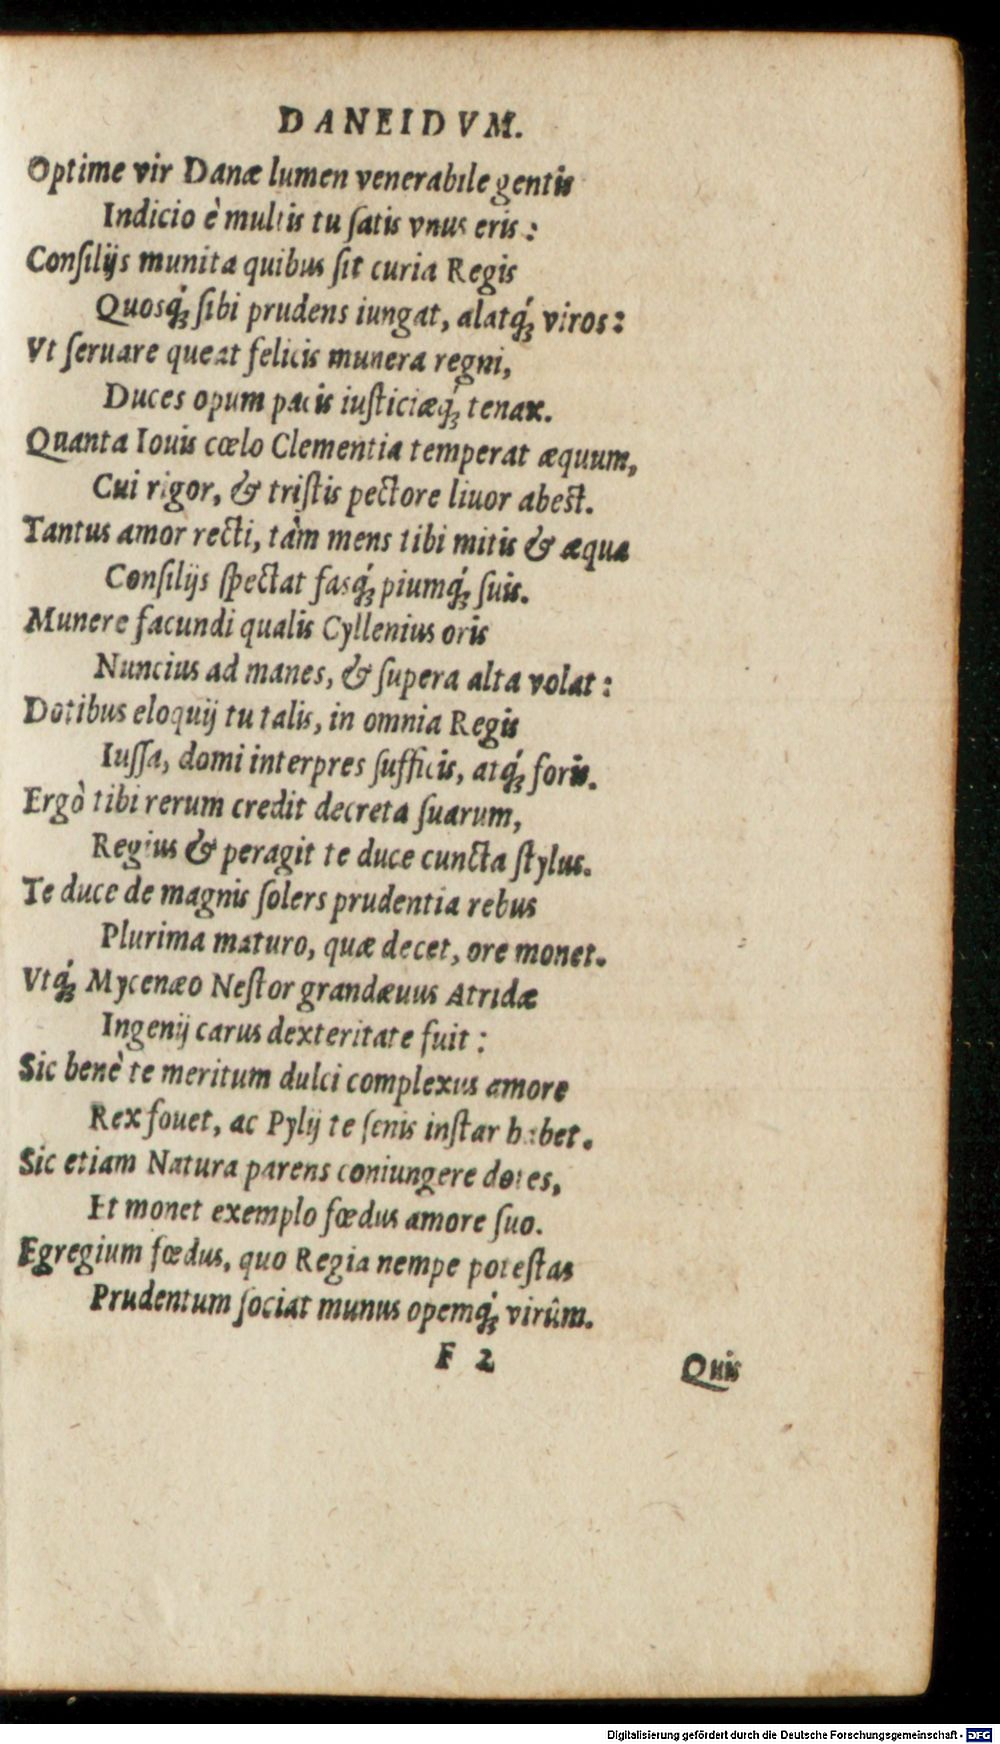 DANEIDVM.
Optime vir Danæ lumen venerabile gentis
Indicio è multis tu ſatis vnus eris :
Conſilijs munita quibus ſit curia Regis
Quosq́ꝫ ſibi prudens iungat, alatq́ꝫ viros :
Vt ſeruare queat felicis munera regni,
Duces opum pacis iuſticiæq́ꝫ tenax.
Quanta Iouis cœlo Clementia temperat æquum,
Cui rigor, & triſtis pectore liuor abest.
Tantus amor recti, tàm mens tibi mitis & æqua
Conſilijs ſpectat fasq́ꝫ piumq́ꝫ ſuis.
Munere facundi qualis Cyllenius oris
Nuncius ad manes, & ſupera alta volat :
Dotibus eloquij tu talis, in omnia Regis
Iuſſa, domi interpres ſufficis, atq́ꝫ foris.
Ergò tibi rerum credit decreta ſuarum,
Regius & peragit te duce cuncta ſtylus.
Te duce de magnis ſolers prudentia rebus
Plurima maturo, quæ decet, ore monet.
Vtq́ꝫ Mycenæo Neſtor grandæuus Atridæ
Ingenij carus dexteritate fuit :
Sic benè te meritum dulci complexus amore
Rex fouet, ac Pylij te ſenis inſtar habet.
Sic etiam Natura parens coniungere dotes,
Et monet exemplo fœdus amore ſuo.
Egregium fœdus, quo Regia nempe poteſtas
Prudentum ſociat munus opemq́ꝫ virûm.
F 2
Quis
Digitalisierung gefördert durch die Deutsche Forschungsgemeinschaft - DFG